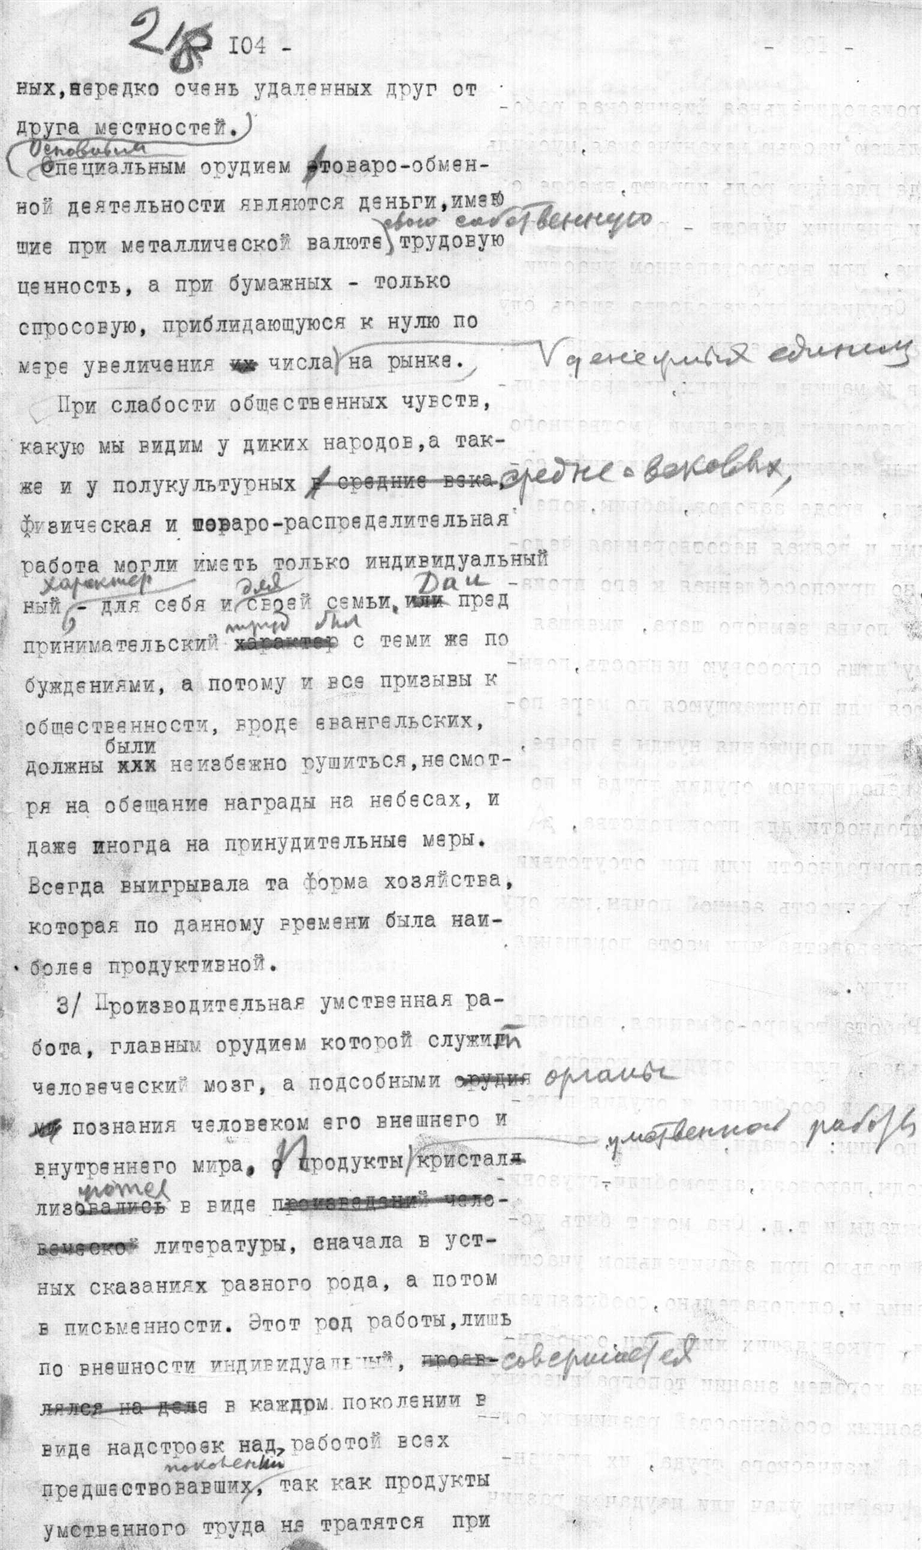 218 104 -
ных, нередко очень удаленных друг от
друга местностей.
Основным
Специальным орудием товаро-обмен-
ной деятельности являются деньги, имею
свою собственную
шие при металлической валюте трудовую
ценность, а при бумажных - только
спросовую, приблидающуюся к нулю по
мере увеличения их числа на рынке. денежных единиц
При слабости общественных чувств,
какую мы видим у диких народов, а так-
же и у полукультурных в средние века, средне-вековых,
физическая и товаро-распределительная
работа могли иметь только индивидуальный
характер для Да и
ный - для себя и своей семьи, или пред
труд был
принимательский характер с теми же по
буждениями, а потому и все призывы к
общественности, вроде евангельских,
были
должны ххх неизбежно рушиться, несмот-
ря на обещание награды на небесах, и
даже иногда на принудительные меры.
Всегда выигрывала та форма хозяйства,
которая по данному времени была наи-
более продуктивной.
3/ Производительная умственная ра-
бота, главным орудием которой служит
человеческий мозг, а подсобными орудия органы
ми познания человеком его внешнего и
умственной работы
внутреннего мира, П продукты кристал-
лизовались в виде произведений чело-
веческой литературы, сначала в уст-
ных сказаниях разного рода, а потом
в письменности. Этот род работы, лишь
по внешности индивидуальный, прояв- совершается
лялся на деле в каждом поколении в
виде надстроек над работой всех
поколений
предшествовавших, так как продукты
умственного труда не тратятся при